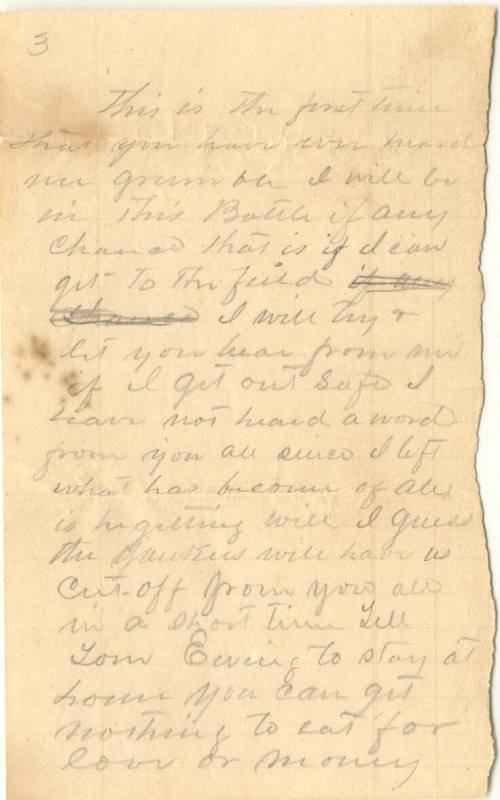 3
This is the first time
that you have ever heard
me grumble I will be
in this Battle if any
chance that is if I can
get to the field if any
chance I will try &
let you hear from me
if I get out safe I
have not heard a word
from you all since I left
what has become of Alex
is he getting well I guess
the Yankees will have us
cut-off from you all
in a short time Tell
Tom Ewing to stay at
home you can get
nothing to eat for
love or money